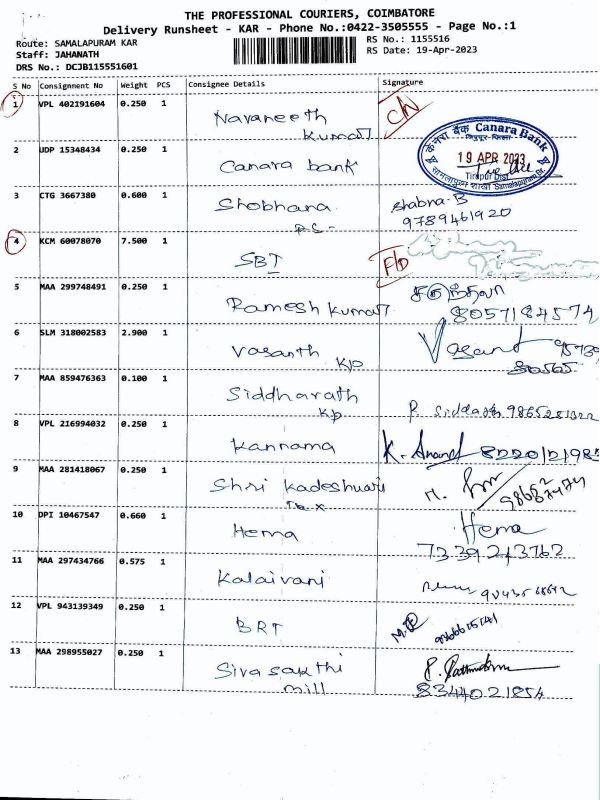 THE PROFESSIONAL COURIERS, COIMBATORE
Delivery Runsheet - KAR - Phone No.:0422-3505555 - Page No.:1
Route: SAMALAPURAM KAR
Staff: JAHANATH
DRS No.: DCJB115551601
RS No.: 1155516
RS Date: 19-Apr-2023
S No Consignment No Weight PCS Consignee Details Signature
1 VPL 402191604 0.250 1 Navaneeth
Kumar
2 UDP 15348434 0.250 1 Canara bank
केनरा बैंक Canara Bank
19 APR 2023
Tirupur Dist.
Samalapuram Br.
3 CTG 3667380 0.600 1 Shobhana Shabna-B
9789461920
4 KCM 60078070 7.500 1 SBT F/D
5 MAA 299748491 0.250 1 Ramesh Kumar
8057184574
6 SLM 318002583 2.900 1 Vasanth Vasant
KP
7 MAA 859476363 0.100 1 Siddharath
KP
8 VPL 216994032 0.250 1 Kannama K. Anand
9 MAA 281418067 0.250 1 Shri Kadeshwari
Tex
10 DPI 10467547 0.660 1 Hema Hema
11 MAA 297434766 0.575 1 Kalaivani
12 VPL 943139349 0.250 1 BRT
13 MAA 298955027 0.250 1 Sivasakthi
mill 8344021854